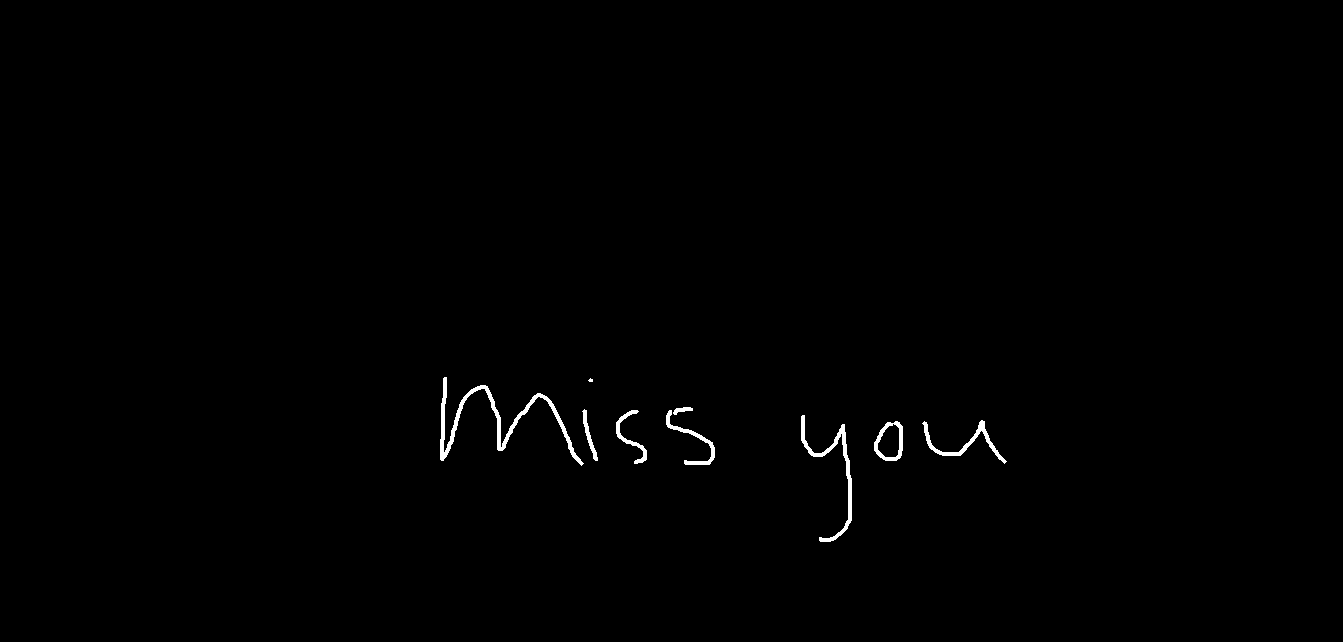 Miss you